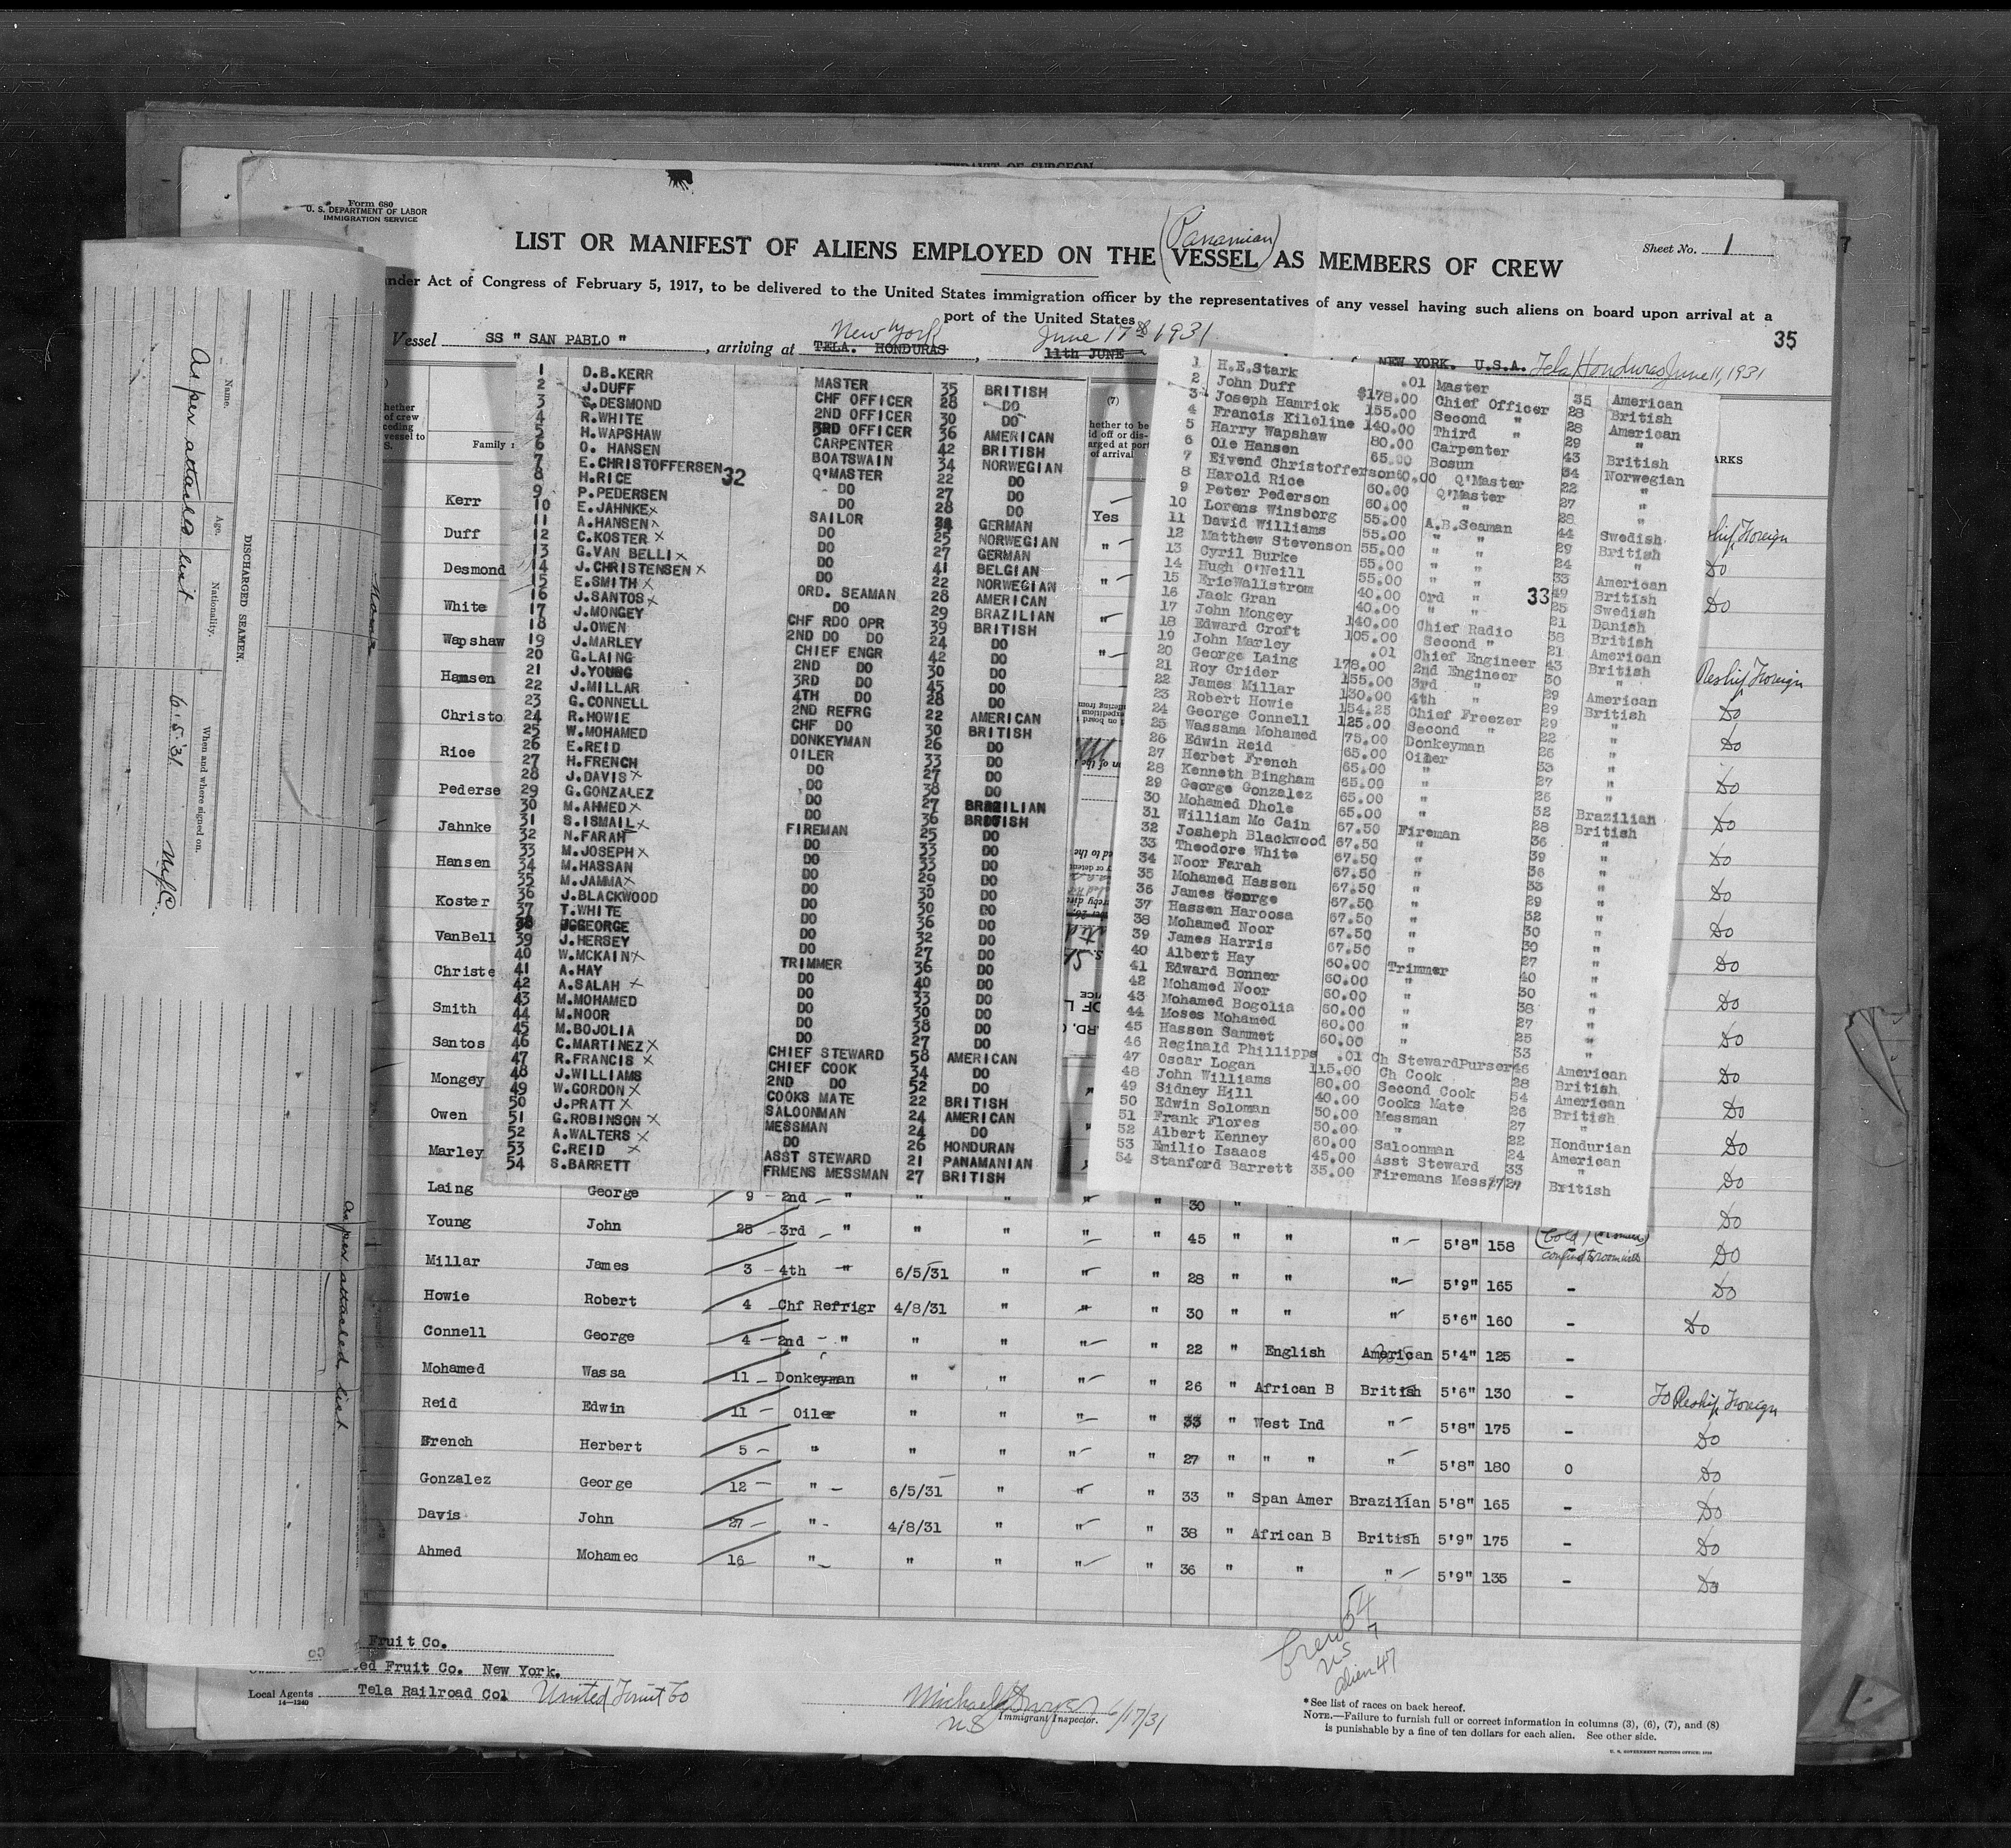 AFFIDAVIT OF SURGEON
Form 680
U. S. DEPARTMENT OF LABOR
IMMIGRATION SERVICE
(Panamian)
LIST OR MANIFEST OF ALIENS EMPLOYED ON THE VESSEL AS MEMBERS OF CREW
Sheet No. 1
7
under Act of Congress of February 5, 1917, to be delivered to the United States immigration officer by the representatives of any vessel having such aliens on board upon arrival at a
port of the United States
35
Vessel SS " SAN PABLO " , arriving at TELA. HONDURAS New York , 11th JUNE June 17th 1931 NEW YORK. U.S.A. Tela Honduras June 11, 1931
1 D.B.KERR MASTER 35 BRITISH
2 J.DUFF CHF OFFICER 28 DO
3 S.DESMOND 2ND OFFICER 30 DO
4 R.WHITE 3RD OFFICER 36 AMERICAN
5 H.WAPSHAW CARPENTER 42 BRITISH
6 O. HANSEN BOATSWAIN 34 NORWEGIAN
7 E.CHRISTOFFERSEN 32 Q'MASTER 22 DO
8 H.RICE DO 27 DO
9 P.PEDERSEN DO 28 DO
10 E.JAHNKE x SAILOR GERMAN
11 A.HANSEN x DO 25 NORWEGIAN
12 C.KOSTER x DO 27 GERMAN
13 G.VAN BELLI x DO 41 BELGIAN
14 J.CHRISTENSEN x DO 22 NORWEGIAN
15 E.SMITH x ORD. SEAMAN 28 AMERICAN
16 J.SANTOS x DO 29 BRAZILIAN
17 J.MONGEY CHF RDO OPR 39 BRITISH
18 J.OWEN 2ND DO DO 24 DO
19 J.MARLEY CHIEF ENGR 42 DO
20 G.LAING 2ND DO 30 DO
21 J.YOUNG 3RD DO 45 DO
22 J.MILLAR 4TH DO 28 DO
23 G.CONNELL 2ND REFRG 22 AMERICAN
24 R.HOWIE CHF DO 30 BRITISH
25 W.MOHAMED DONKEYMAN 26 DO
26 E.REID OILER 33 DO
27 H.FRENCH DO 27 DO
28 J.DAVIS x DO 38 DO
29 G.GONZALEZ DO 27 BRAZILIAN
30 M.AHMED x DO 36 BRITISH
31 S.ISMAIL x FIREMAN 25 DO
32 N.FARAH DO 33 DO
33 M.JOSEPH x DO 33 DO
34 M.HASSAN DO 29 DO
35 M.JAMMA x DO 30 DO
36 J.BLACKWOOD DO 30 DO
37 T.WHITE DO 36 DO
38 J.GEORGE DO 32 DO
39 J.HERSEY DO 27 DO
40 W.MCKAIN x TRIMMER 36 DO
41 A.HAY DO 40 DO
42 A.SALAH x DO 33 DO
43 M.MOHAMED DO 30 DO
44 M.NOOR DO 38 DO
45 M.BOJOLIA DO 27 DO
46 C.MARTINEZ x CHIEF STEWARD 58 AMERICAN
47 R.FRANCIS x CHIEF COOK 34 DO
48 J.WILLIAMS 2ND DO 52 DO
49 W.GORDON x COOKS MATE 22 BRITISH
50 J.PRATT x SALOONMAN 24 AMERICAN
51 G.ROBINSON x MESSMAN 24 DO
52 A.WALTERS x DO 26 HONDURAN
53 C.REID x ASST STEWARD 21 PANAMANIAN
54 S.BARRETT FRMENS MESSMAN 27 BRITISH
1 H.E.Stark .01 Master 35 American
2 John Duff $178.00 Chief Officer 28 British
3 Joseph Hamrick 155.00 Second " 28 American
4 Francis Kilcline 140.00 Third " 29 "
5 Harry Wapshaw 80.00 Carpenter 43 British
6 Ole Hansen 65.00 Bosun 34 Norwegian
7 Eivend Christofferson 60.00 Q'Master 22 "
8 Harold Rice 60.00 Q'Master 27 "
9 Peter Pederson 60.00 " 28 "
10 Lorens Winsborg 55.00 A.B.Seaman 44 Swedish
11 David Williams 55.00 " " 29 British
12 Matthew Stevenson 55.00 " " 24 "
13 Cyril Burke 55.00 " " 33 American
14 Hugh O'Neill 55.00 " " 49 British
15 EricWallstrom 40.00 Ord " 33 25 Swedish
16 Jack Gran 40.00 " " 21 Danish
17 John Mongey 140.00 Chief Radio 38 British
18 Edward Croft 105.00 Second " 21 American
19 John Marley .01 Chief Engineer 43 British
20 George Laing 178.00 2nd Engineer 30 "
21 Roy Crider 155.00 3rd " 29 American
22 James Millar 130.00 4th " 29 British
23 Robert Howie 154.25 Chief Freezer 29 "
24 George Connell 125.00 Second " 22 "
25 Wassama Mohamed 75.00 Donkeyman 26 "
26 Edwin Reid 65.00 Oiler 33 "
27 Herbet French 65.00 " 27 "
28 Kenneth Bingham 65.00 " 26 "
29 George Gonzalez 65.00 " 32 Brazilian
30 Mohamed Dhole 65.00 " 28 British
31 William Mc Cain 67.50 Fireman 36 "
32 Josheph Blackwood 67.50 " 39 "
33 Theodore White 67.50 " 36 "
34 Noor Farah 67.50 " 33 "
35 Mohamed Hassen 67.50 " 29 "
36 James George 67.50 " 32 "
37 Hassen Haroosa 67.50 " 30 "
38 Mohamed Noor 67.50 " 30 "
39 James Harris 67.50 " 27 "
40 Albert Hay 60.00 Trimmer 40 "
41 Edward Bonner 60.00 " 30 "
42 Mohamed Noor 60.00 " 38 "
43 Mohamed Bogolia 60.00 " 27 "
44 Moses Mohamed 60.00 " 25 "
45 Hassen Sammet 60.00 " 33 "
46 Reginald Phillipps .01 Ch StewardPurser 46 American
47 Oscar Logan 115.00 Ch Cook 28 British
48 John Williams 80.00 Second Cook 54 American
49 Sidney Hill 40.00 Cooks Mate 26 British
50 Edwin Soloman 50.00 Messman 27 "
51 Frank Flores 50.00 " 22 Hondurian
52 Albert Kenney 60.00 Saloonman 24 American
53 Emilio Isaacs 45.00 Asst Steward 33 "
54 Stanford Barrett 35.00 Firemans Mess 27 British
Kerr
Duff
Desmond
White
Wapshaw
Hamsen
Christo
Rice
Pederse
Jahnke
Hansen
Koster
VanBell
Christe
Smith
Santos
Mongey
Owen
Marley
Laing George 9 2nd " " " " " 30 "
Young John 25 3rd " " " " " 45 " " " 5'8" 158 Do
Millar James 3 4th " 6/5/31 " " " 28 " " " 5'9" 165 - Do
Howie Robert 4 Chf Refrigr 4/8/31 " " " 30 " " " 5'6" 160 - Do
Connell George 4 2nd " " " " " 22 " English American 5'4" 125 -
Mohamed Wassa 11 Donkeyman " " " " 26 " African B British 5'6" 130 - To Reship Foreign
Reid Edwin 11 Oiler " " " " 33 " West Ind " 5'8" 175 - Do
French Herbert 5 " " " " " 27 " " " " 5'8" 180 0 Do
Gonzalez George 12 " 6/5/31 " " " 33 " Span Amer Brazilian 5'8" 165 - Do
Davis John 27 " 4/8/31 " " " 38 " African B British 5'9" 175 - Do
Ahmed Mohamec 16 " " " " " 36 " " " 5'9" 135 - Do
Fruit Co.
ed Fruit Co. New York.
Local Agents Tela Railroad Col United Fruit Co
14-1240
Immigrant Inspector. 6/17/31
Crew 54
US 7
alien 47
*See list of races on back hereof.
NOTE.—Failure to furnish full or correct information in columns (3), (6), (7), and (8)
is punishable by a fine of ten dollars for each alien. See other side.
U. S. GOVERNMENT PRINTING OFFICE: 1930
DISCHARGED SEAMEN.
Name.
Age.
Nationality.
When and where signed on.
As per attached list
6.5.31
N.Y.C.
As per attached list